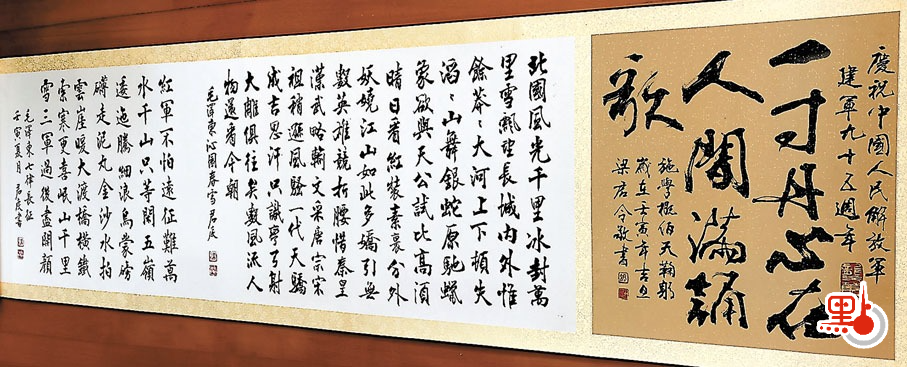 慶祝中國人民解放軍
建軍九十五週年
一寸丹心在
人間滿誦
歌
施學概伯天鞠躬
歲在壬寅年吉旦
梁君令敬書
北國風光千里冰封萬
里雪飄望長城內外惟
餘莽〻大河上下頓失
滔〻山舞銀蛇原馳蠟
象欲與天公試比高須
晴日看紅裝素裹分外
妖嬈江山如此多嬌引無
數英雄競折腰惜秦皇
漢武略輸文采唐宗宋
祖稍遜風騷一代天驕
成吉思汗只識彎弓射
大雕俱往矣數風流人
物還看今朝
毛澤東沁園春雪君度
紅軍不怕遠征難萬
水千山只等閒五嶺
逶迤騰細浪烏蒙磅
礴走泥丸金沙水拍
雲崖暖大渡橋橫鐵
索寒更喜岷山千里
雪三軍過後盡開顏
毛澤東七律長征
壬寅夏月君度書
點